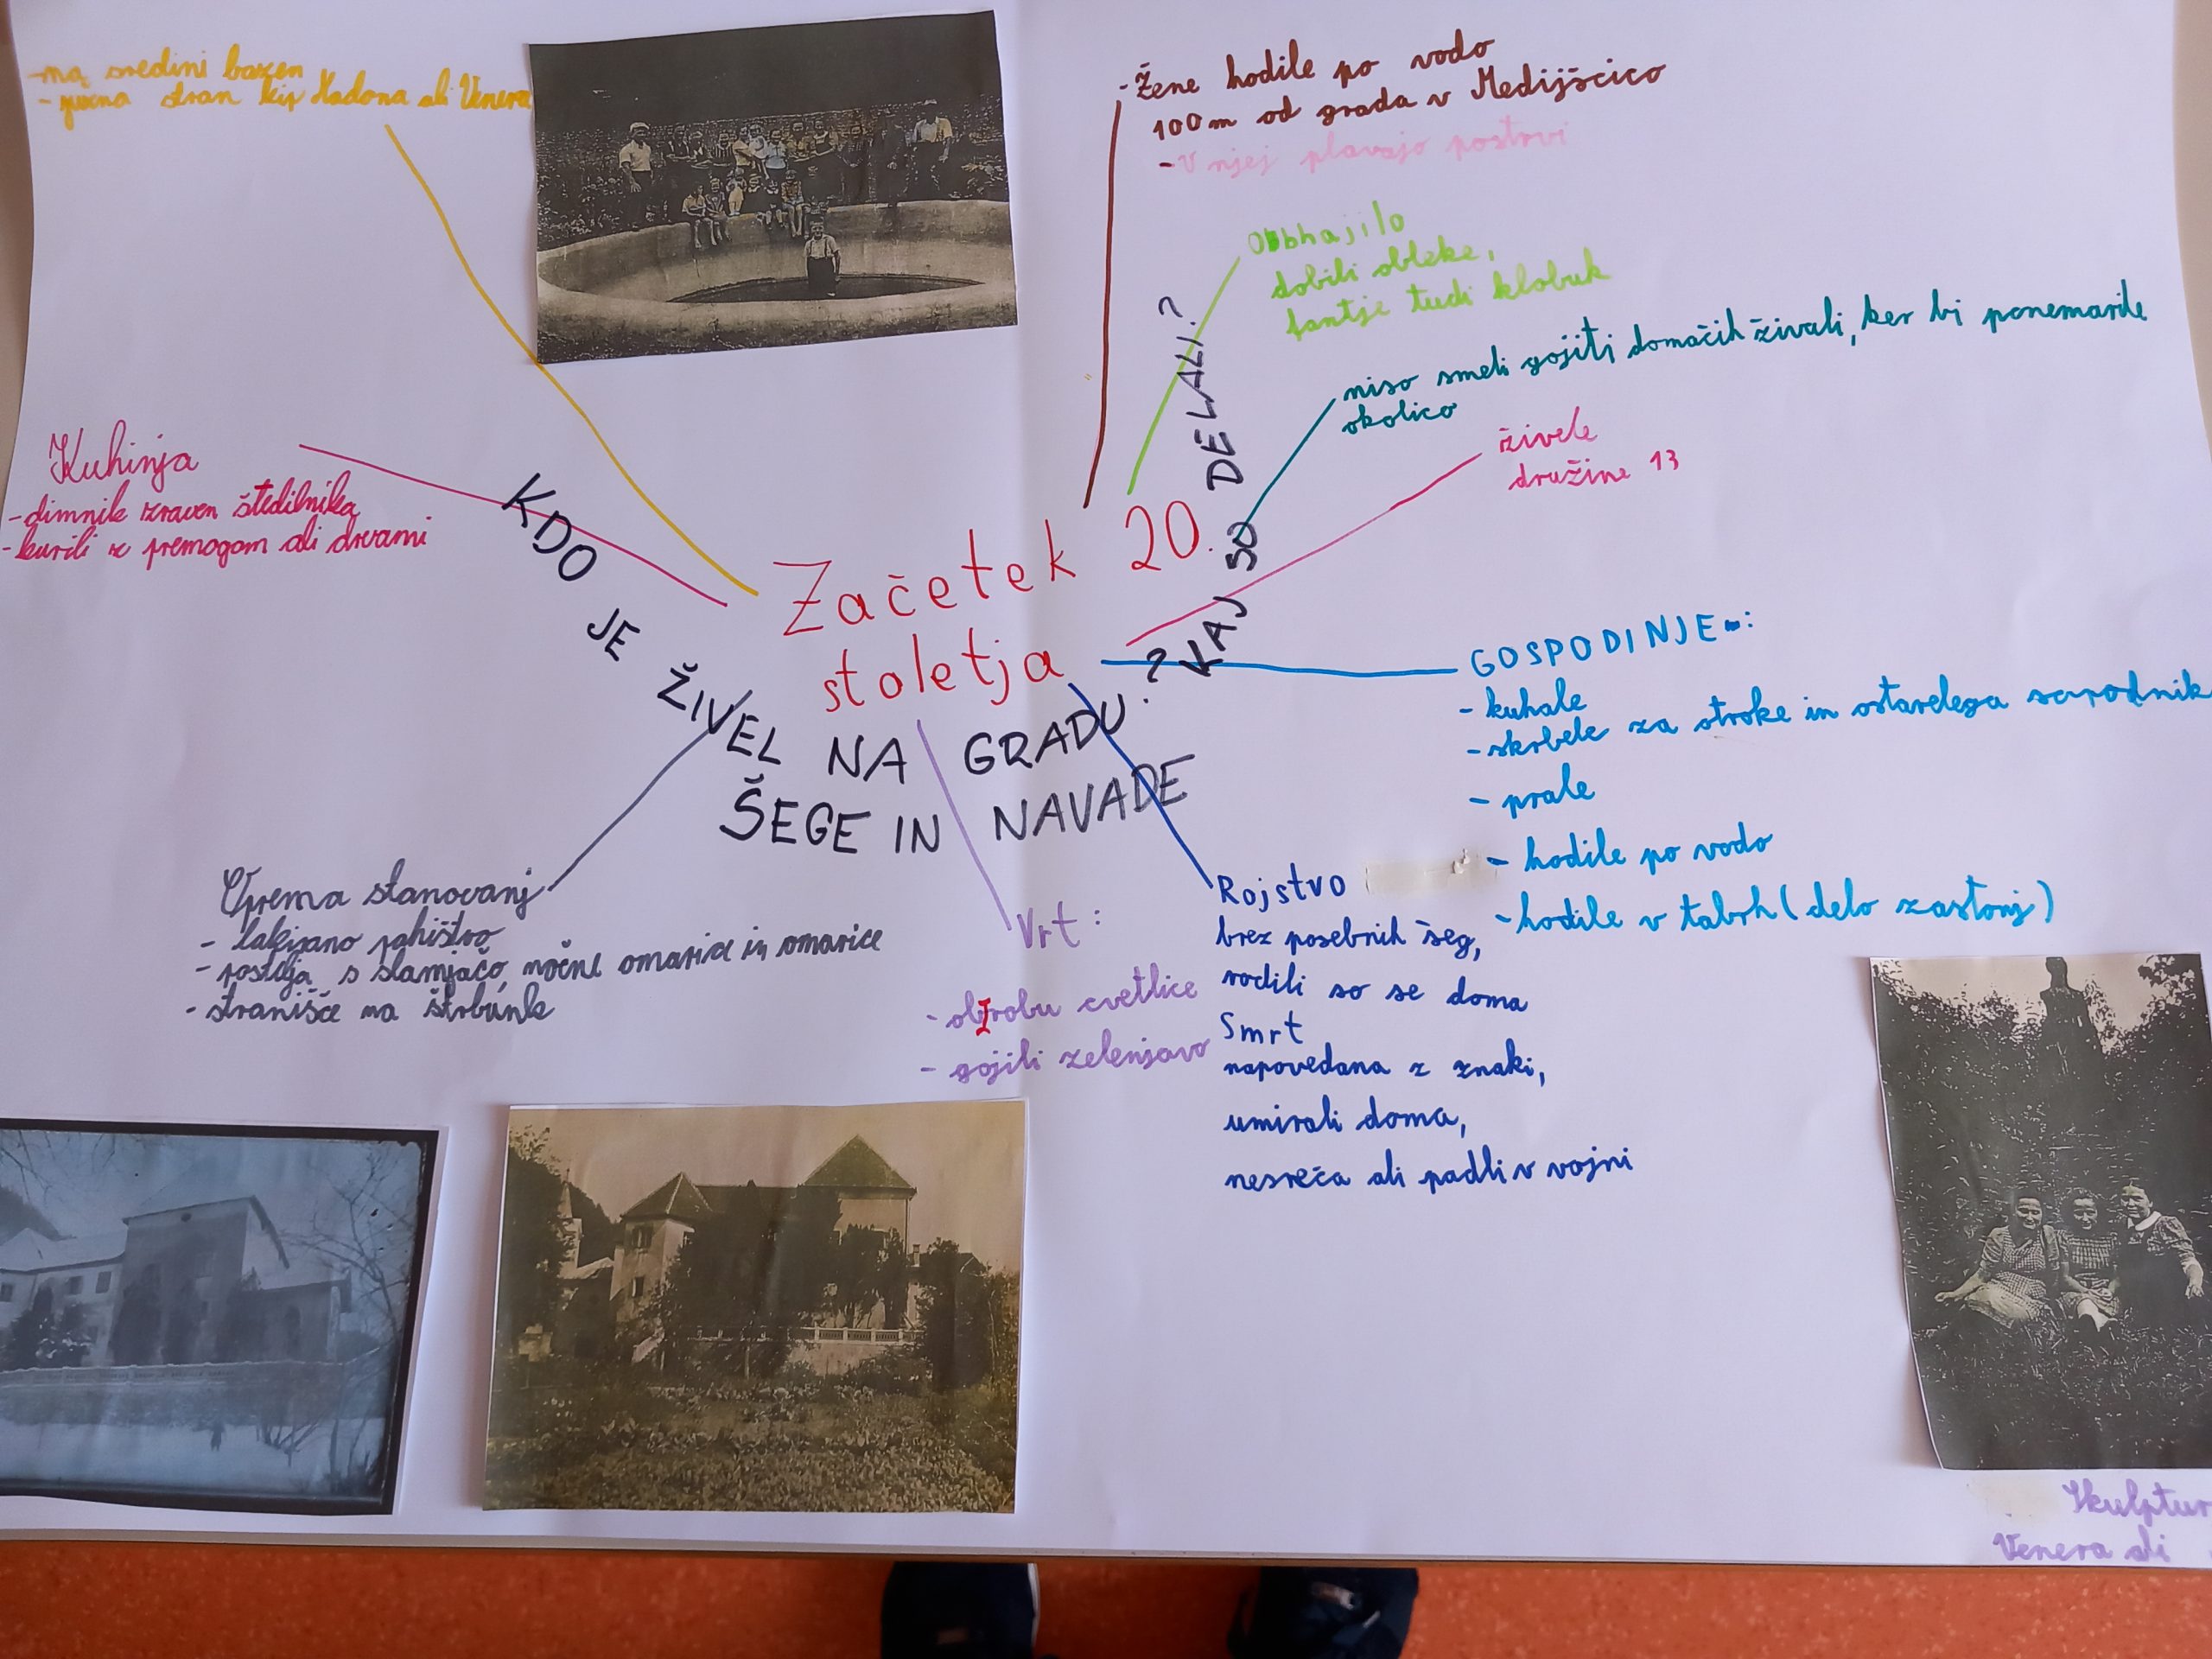 - na sredini bazen
- južna stran kip Madona ali Venera
- Žene hodile po vodo
100 m od grada v Medijščico
- V njej plavajo postrvi
Obhajilo
dobili obleke,
fantje tudi klobuk
niso smeli gojiti domačih živali, ker bi ponemarile
okolico
živele
družine 13
Kuhinja
- dimnik zraven štedilnika
- kurili z premogom ali drvami
Začetek 20.
stoletja
KDO JE ŽIVEL NA GRADU?
KAJ SO DELALI?
ŠEGE IN NAVADE
GOSPODINJE:
- kuhale
- skrbele za otroke in ostarelega sorodnik
- prale
- hodile po vodo
- hodile v tabrh (delo zastonj)
Oprema stanovanj
- lakirano pohištvo
- postelja s slamjačo, nočne omarice in omarice
- stranišče na štrbunk
Vrt:
- ob robu cvetlice
- gojili zelenjavo
Rojstvo
brez posebnih šeg,
rodili so se doma
Smrt
napovedana z znaki,
umirali doma,
nesreča ali padli v vojni
Skulptur
Venera ali